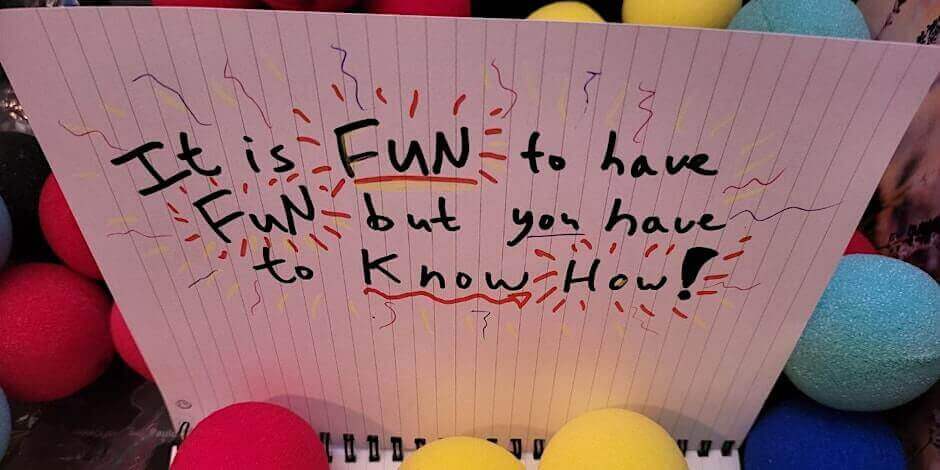 It is FUN to have
FUN but you have
to Know How!